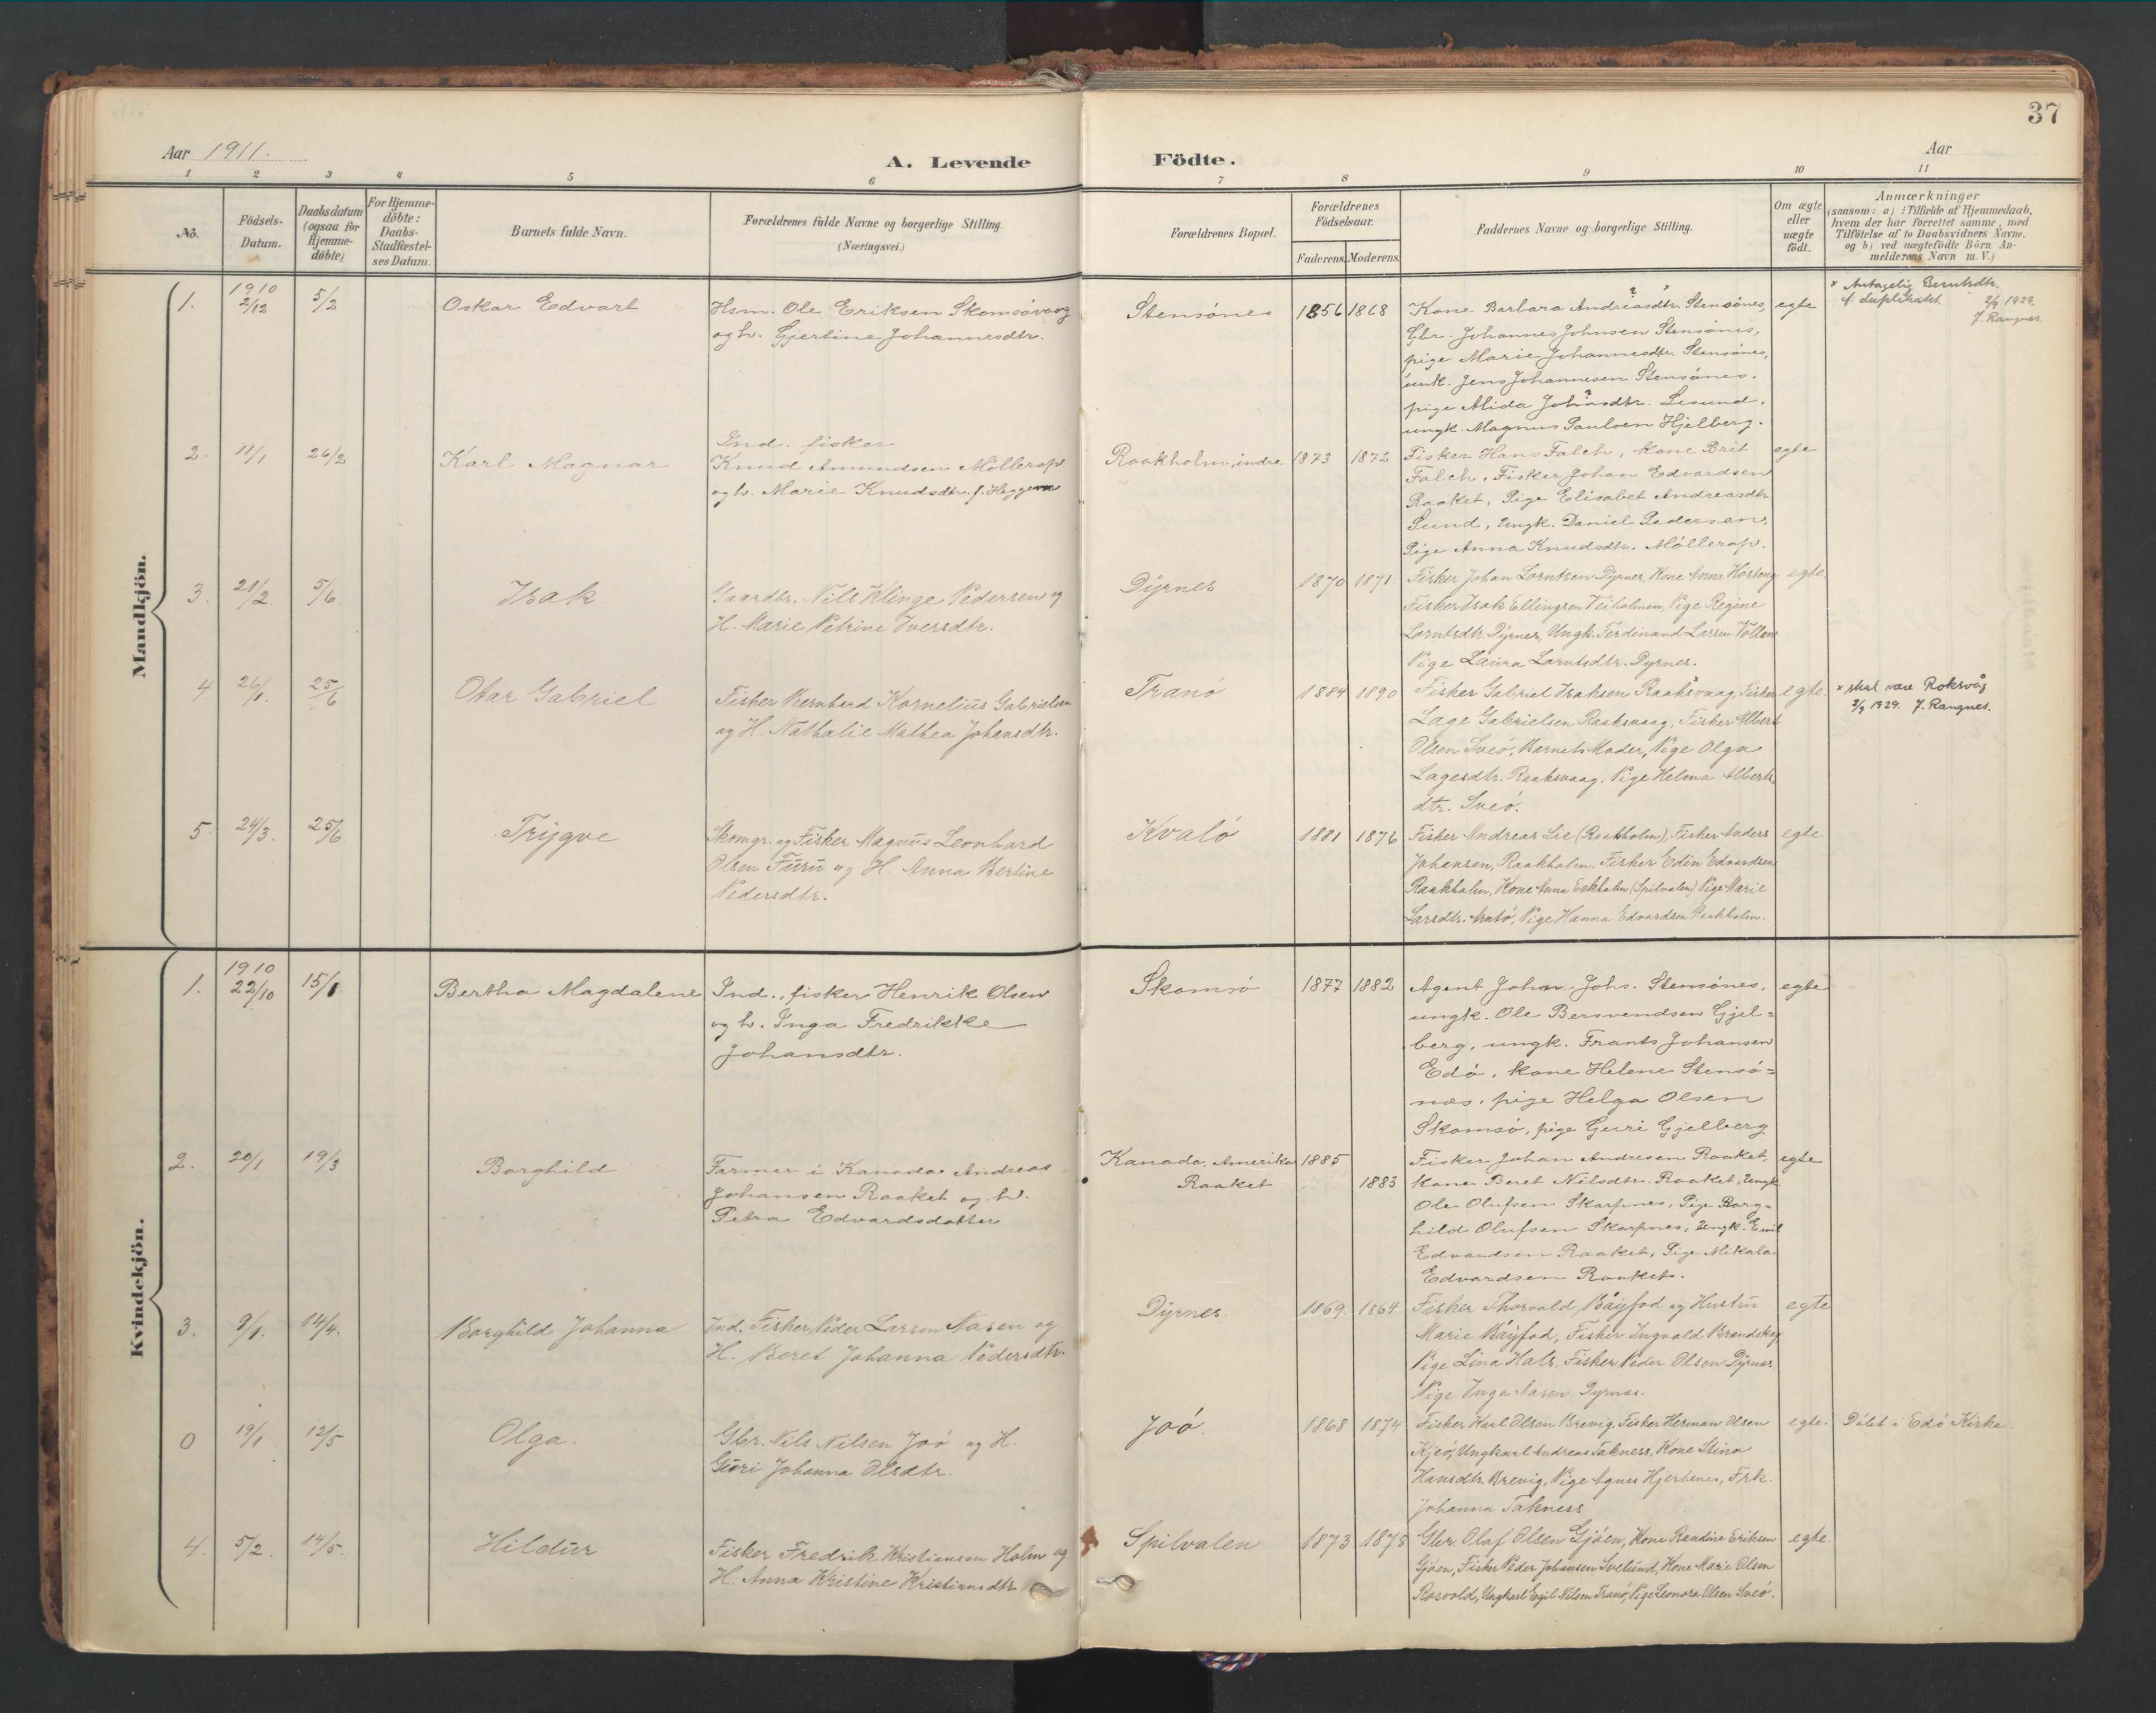 37
Aar 1911.
A. Levende Födte.
Aar
1 2 3 4 5 6 7 8 9 10 11
No.
Födsels-
Datum.
Daabsdatum
(ogsaa for
Hjemme-
döbte)
For Hjemme-
döbte:
Daabs-
Stadfæstel-
ses Datum.
Barnets fulde Navn.
Forældrenes fulde Navne og borgerlige Stilling
(Næringsvei.)
Forældrenes Bopæl.
Forældrenes
Födselsaar.
Faderens. Moderens.
Faddernes Navne og borgerlige Stilling.
Om ægte
eller
uægte
födt.
Anmærkninger
(saasom: a) i Tilfælde af Hjemmedaab,
hvem der har forrettet samme, med
Tilföielse af to Daabsvidners Navne.
og b) ved uægtefödte Börn An-
melderens Navn m. V.)
Mandkjön.
1.
1910
2/12
5/2
Oskar Edvart
Hsm. Ole Eriksen Skomsövaag
og h. Gjertine Johannesdtr.
Stensönes
1856 1868
Kone Barbara Andreasdtr. Stensönes,
Gbr. Johannes Johnsen Stensönes,
pige Marie Johannesdtr. Stensönes,
unk. Jens Johannesen Stensönes.
pige Alida Johnsdtr. Lesund.
ungk. Magnus Paulsen Hjelberg.
egte
x Antagelig Berntsdtr.
f. duplikatet 2/9 1929.
J. Rangnes.
2.
11/1
26/2
Karl Magnar
Ind. fisker
Knud Amundsen Möllerop
og h. Marie Knudsdtr. f. Heggem
Raakholm, indre
1873 1872
Fisker Hans Falch, Kone Brit
Falch, Fisker Johan Edvardsen
Raaket, Pige Elisabet Andreasdtr
Sund, Ungk. Daniel Pedersen,
Pige Anna Knudsdtr. Möllerop.
egte
3.
21/2.
5/6
Isak
Gaardbr. Nils Klinge Pedersen og
H. Marie Petrine Iversdtr.
Dyrnes
1870 1871.
Fisker Johan Lorntsen Dyrnes, Kone Anna Hosteng
Fisker Isak Ellingsen Veiholmen, Pige Regine
Lorntsdtr. Dyrnes, Ungk. Ferdinand Larsen Vollen
Pige Laura Lorntsdtr. Dyrnes.
egte.
4.
26/1.
25/6
Otar Gabriel
Fisker Bernhard Kornelius Gabrielsen
og H. Nathalie Mathea Johansdtr.
Tranö
1884 1890
Fisker Gabriel Isaksen Raaksvaag, Fisker
Lage Gabrielsen Raaksvaag, Fisker Albert
Olsen Sveö, Barnets Moder, Pige Olga
Lagesdtr. Raaksvaag, Pige Helma Alberts
dtr. Sveö.
egte.
x skal være Roksvåg
2/9 1929. J. Rangnes.
5.
24/3.
25/6
Trygve
Skomgr. og Fisker Magnus Leonhard
Olsen Furu og H. Anna Bertine
Pedersdtr.
Kvalö
1881 1876
Fisker Andreas Lie (Raakholm), Fisker Anders
Johansen, Raakholm, Fisker Edin Edvardsen
Raakholm, Kone Anna Eekholm (Spilvalen) Pige Marie
Larsdtr. Aratö, Pige Hanna Edvardsen Raakholm.
egte
Kvindekjön.
1.
1910
22/10
15/1.
Bertha Magdalene
Ind., fisker Henrik Olsen
og h. Inga Fredrikke
Johansdtr.
Skomsö
1877 1882
Agent Johan Johs. Stensönes,
ungk. Ole Bersvendsen Gjel=
berg, ungk. Frants Johansen
Edö, kone Helene Stensö=
næs. pige Helga Olsen
Skomsö, pige Guri Gjelberg
egte
2.
20/1
19/3
Borghild
Farmer i Kanada Andreas
Johansen Raaket og h.
Petra Edvardsdatter
Kanada, Amerika
Raaket
1885
1883
Fisker Johan Andresen Raaket,
kone Beret Nilsdtr. Raaket, Ungk
Ole Olufsen Skarpnes, Pige Borg=
hild Olufsen Skarpnes, Ungk. Emil
Edvardsen Raaket, Pige Nikola
Edvardsen Raaket.
egte
3.
9/1.
14/4.
Borghild Johanna
Ind. Fisker Peder Larsen Aasen og
H. Beret Johanna Pedersdtr.
Dyrnes.
1869. 1864
Fisker Thorvald Böyfod og Hustru
Marie Böyfod, Fisker Ingvald Brandskag
Pige Lina Hals, Fisker Peder Olsen Dyrnes
Pige Inga Aasen Dyrnes.
egte
0
19/1
12/5
Olga.
Gbr. Nils Nilsen Joö og H.
Guri Johanna Olsdtr.
Joö.
1868 1874
Fisker Karl Olsen Brevig, Fisker Herman Olsen
Kjeö, Ungkarl Andreas Takness, Kone Stina
Hansdtr. Brevig, Pige Agnes Hjertenes, Frk.
Johanna Takness
egte.
Döbt i Edö Kirke.
4.
5/2.
14/5.
Hildur
Fisker Fredrik Kristiansen Holm og
H. Anna Kristine Kristiansdtr.
Spilvalen
1873 1878
Gbr. Olaf Olsen Gjöen, Kone Randine Eriksen
Gjöen, Fisker Peder Johansen Svelund, Kone Marie Olsen
Rosvold, Ungkarl Egil Nilsen Tranö, Pige Leonora Olsen Sveö.
egte.